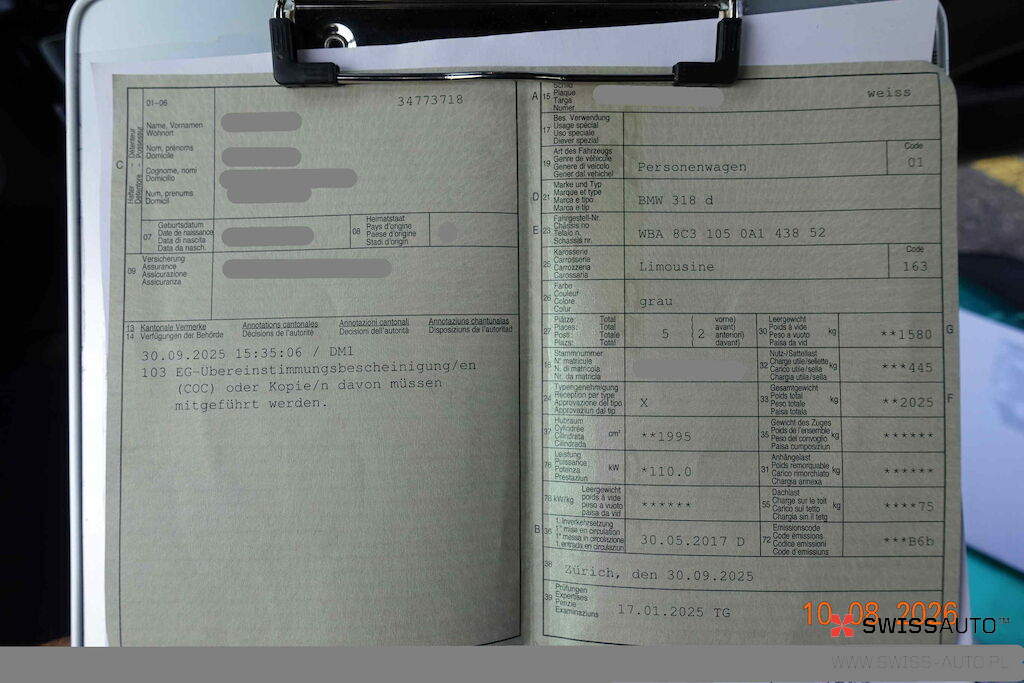 01-06
34773718
C
Halter
Détenteur
Detentore
Possessur
Name, Vornamen
Wohnort
Nom, prénoms
Domicile
Cognome, nomi
Domicilio
Num, prenums
Domicil
07
Geburtsdatum
Date de naissance
Data di nascita
Data da nasch.
08
Heimatstaat
Pays d'origine
Paese d'origine
Stadi d'origin
09
Versicherung
Assurance
Assicurazione
Assicuranza
13
14
Kantonale Vermerke
Verfügungen der Behörde
Annotations cantonales
Décisions de l'autorité
Annotazioni cantonali
Decisioni dell'autorità
Annotaziuns chantunalas
Disposiziuns da l'autoritad
30.09.2025 15:35:06 / DM1
103 EG-Übereinstimmungsbescheinigung/en
(COC) oder Kopie/n davon müssen
mitgeführt werden.
A 15
Schild
Plaque
Targa
Numer
weiss
17
Bes. Verwendung
Usage spécial
Uso speciale
Diever spezial
19
Art des Fahrzeugs
Genre de véhicule
Genere di veicolo
Gener dal vehichel
Personenwagen
Code
01
D 21
Marke und Typ
Marque et type
Marca e tipo
Marca e tip
BMW 318 d
E 23
Fahrgestell-Nr.
Châssis no
Telaio n.
Schassis nr.
WBA 8C3 105 0A1 438 52
25
Karosserie
Carrosserie
Carrozzeria
Carossaria
Limousine
Code
163
26
Farbe
Couleur
Colore
Colur
grau
27
Plätze: Total
Places: Total
Posti: Totale
Plazs: Total
5
(2
vorne)
avant)
anteriori)
davant)
30
Leergewicht
Poids à vide
Peso a vuoto
Paisa da vid
kg
**1580
G
18
Stammnummer
N° matricule
N. di matricola
Nr. da matricla
32
Nutz-/Sattellast
Charge utile/sellette
Carico utile/sella
Chargia utila/sella
kg
***445
24
Typengenehmigung
Réception par type
Approvazione del tipo
Approvaziun dal tip
X
33
Gesamtgewicht
Poids total
Peso totale
Paisa totala
kg
**2025
F
37
Hubraum
Cylindrée
Cilindrata
Cilindrada
cm³
**1995
35
Gewicht des Zuges
Poids de l'ensemble
Peso del convoglio
Paisa cumposiziun
kg
******
76
Leistung
Puissance
Potenza
Prestaziun
kW
*110.0
31
Anhängelast
Poids remorquable
Carico rimorchiato
Chargia annexa
kg
******
78 kW/kg
Leergewicht
poids à vide
peso a vuoto
paisa da vid
******
55
Dachlast
Charge sur le toit
Carico sul tetto
Chargia sin il tetg
kg
****75
B 36
1. Inverkehrsetzung
1re mise en circulation
1a messa in circolazione
1. entrada en circulaziun
30.05.2017 D
72
Emissionscode
Code émissions
Codice emissioni
Code d'emissiuns
***B6b
38
Zürich, den 30.09.2025
39
Prüfungen
Expertises
Perizie
Examinaziuns
17.01.2025 TG
10.08.2026
SWISSAUTO™
WWW.SWISS-AUTO.PL